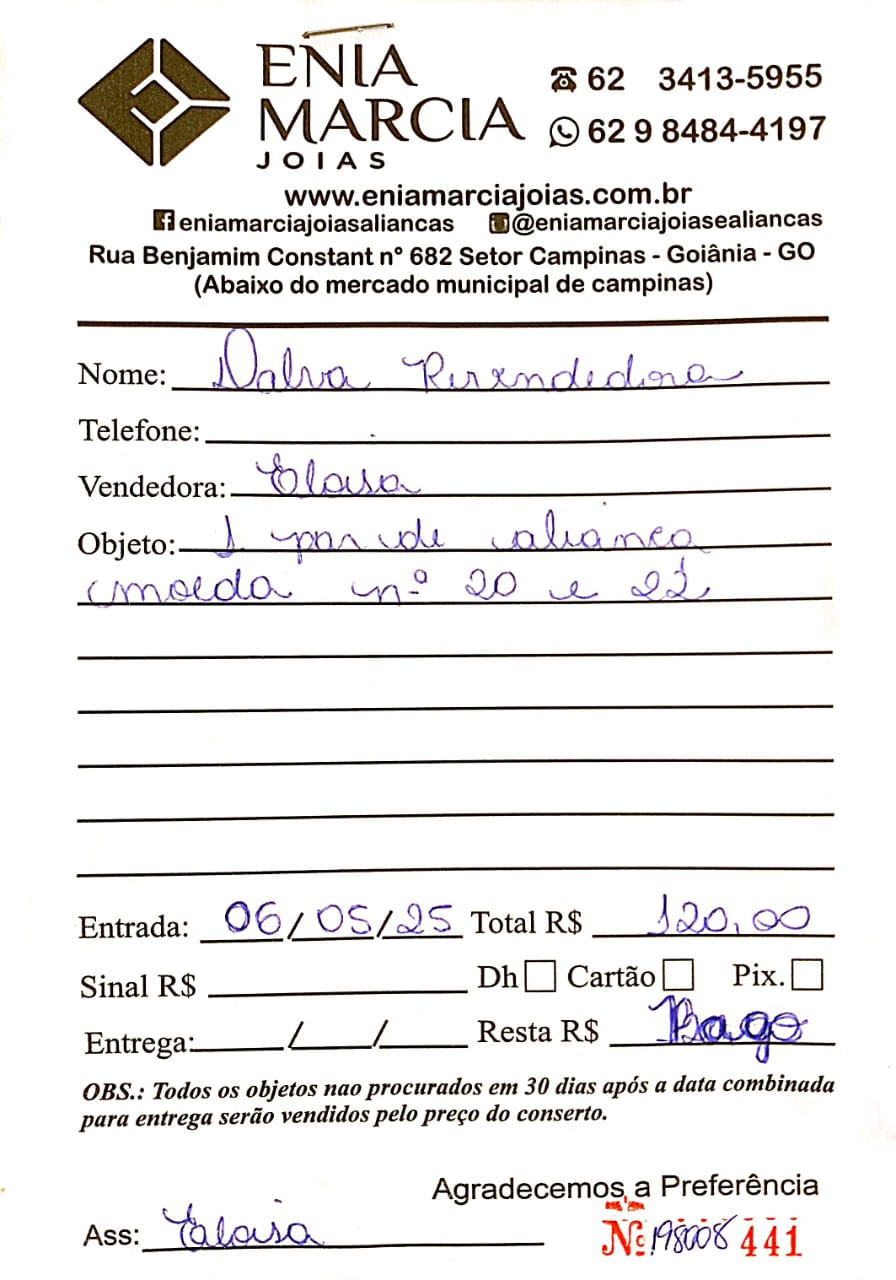 ENIA
MARCIA
JOIAS
62 3413-5955
62 9 8484-4197
www.eniamarciajoias.com.br
eniamarciajoiasaliancas @eniamarciajoiasealiancas
Rua Benjamim Constant nº 682 Setor Campinas - Goiânia - GO
(Abaixo do mercado municipal de campinas)
Nome: Dalva Revendedora
Telefone:
Vendedora: Eloisa
Objeto: 1 par de aliança
moeda nº 20 e 22
Entrada: 06/05/25 Total R$ 120,00
Sinal R$ Dh Cartão Pix.
Entrega: / / Resta R$ Pago
OBS.: Todos os objetos nao procurados em 30 dias após a data combinada
para entrega serão vendidos pelo preço do conserto.
Agradecemos a Preferência
Ass: Eloisa Nº 198008 441